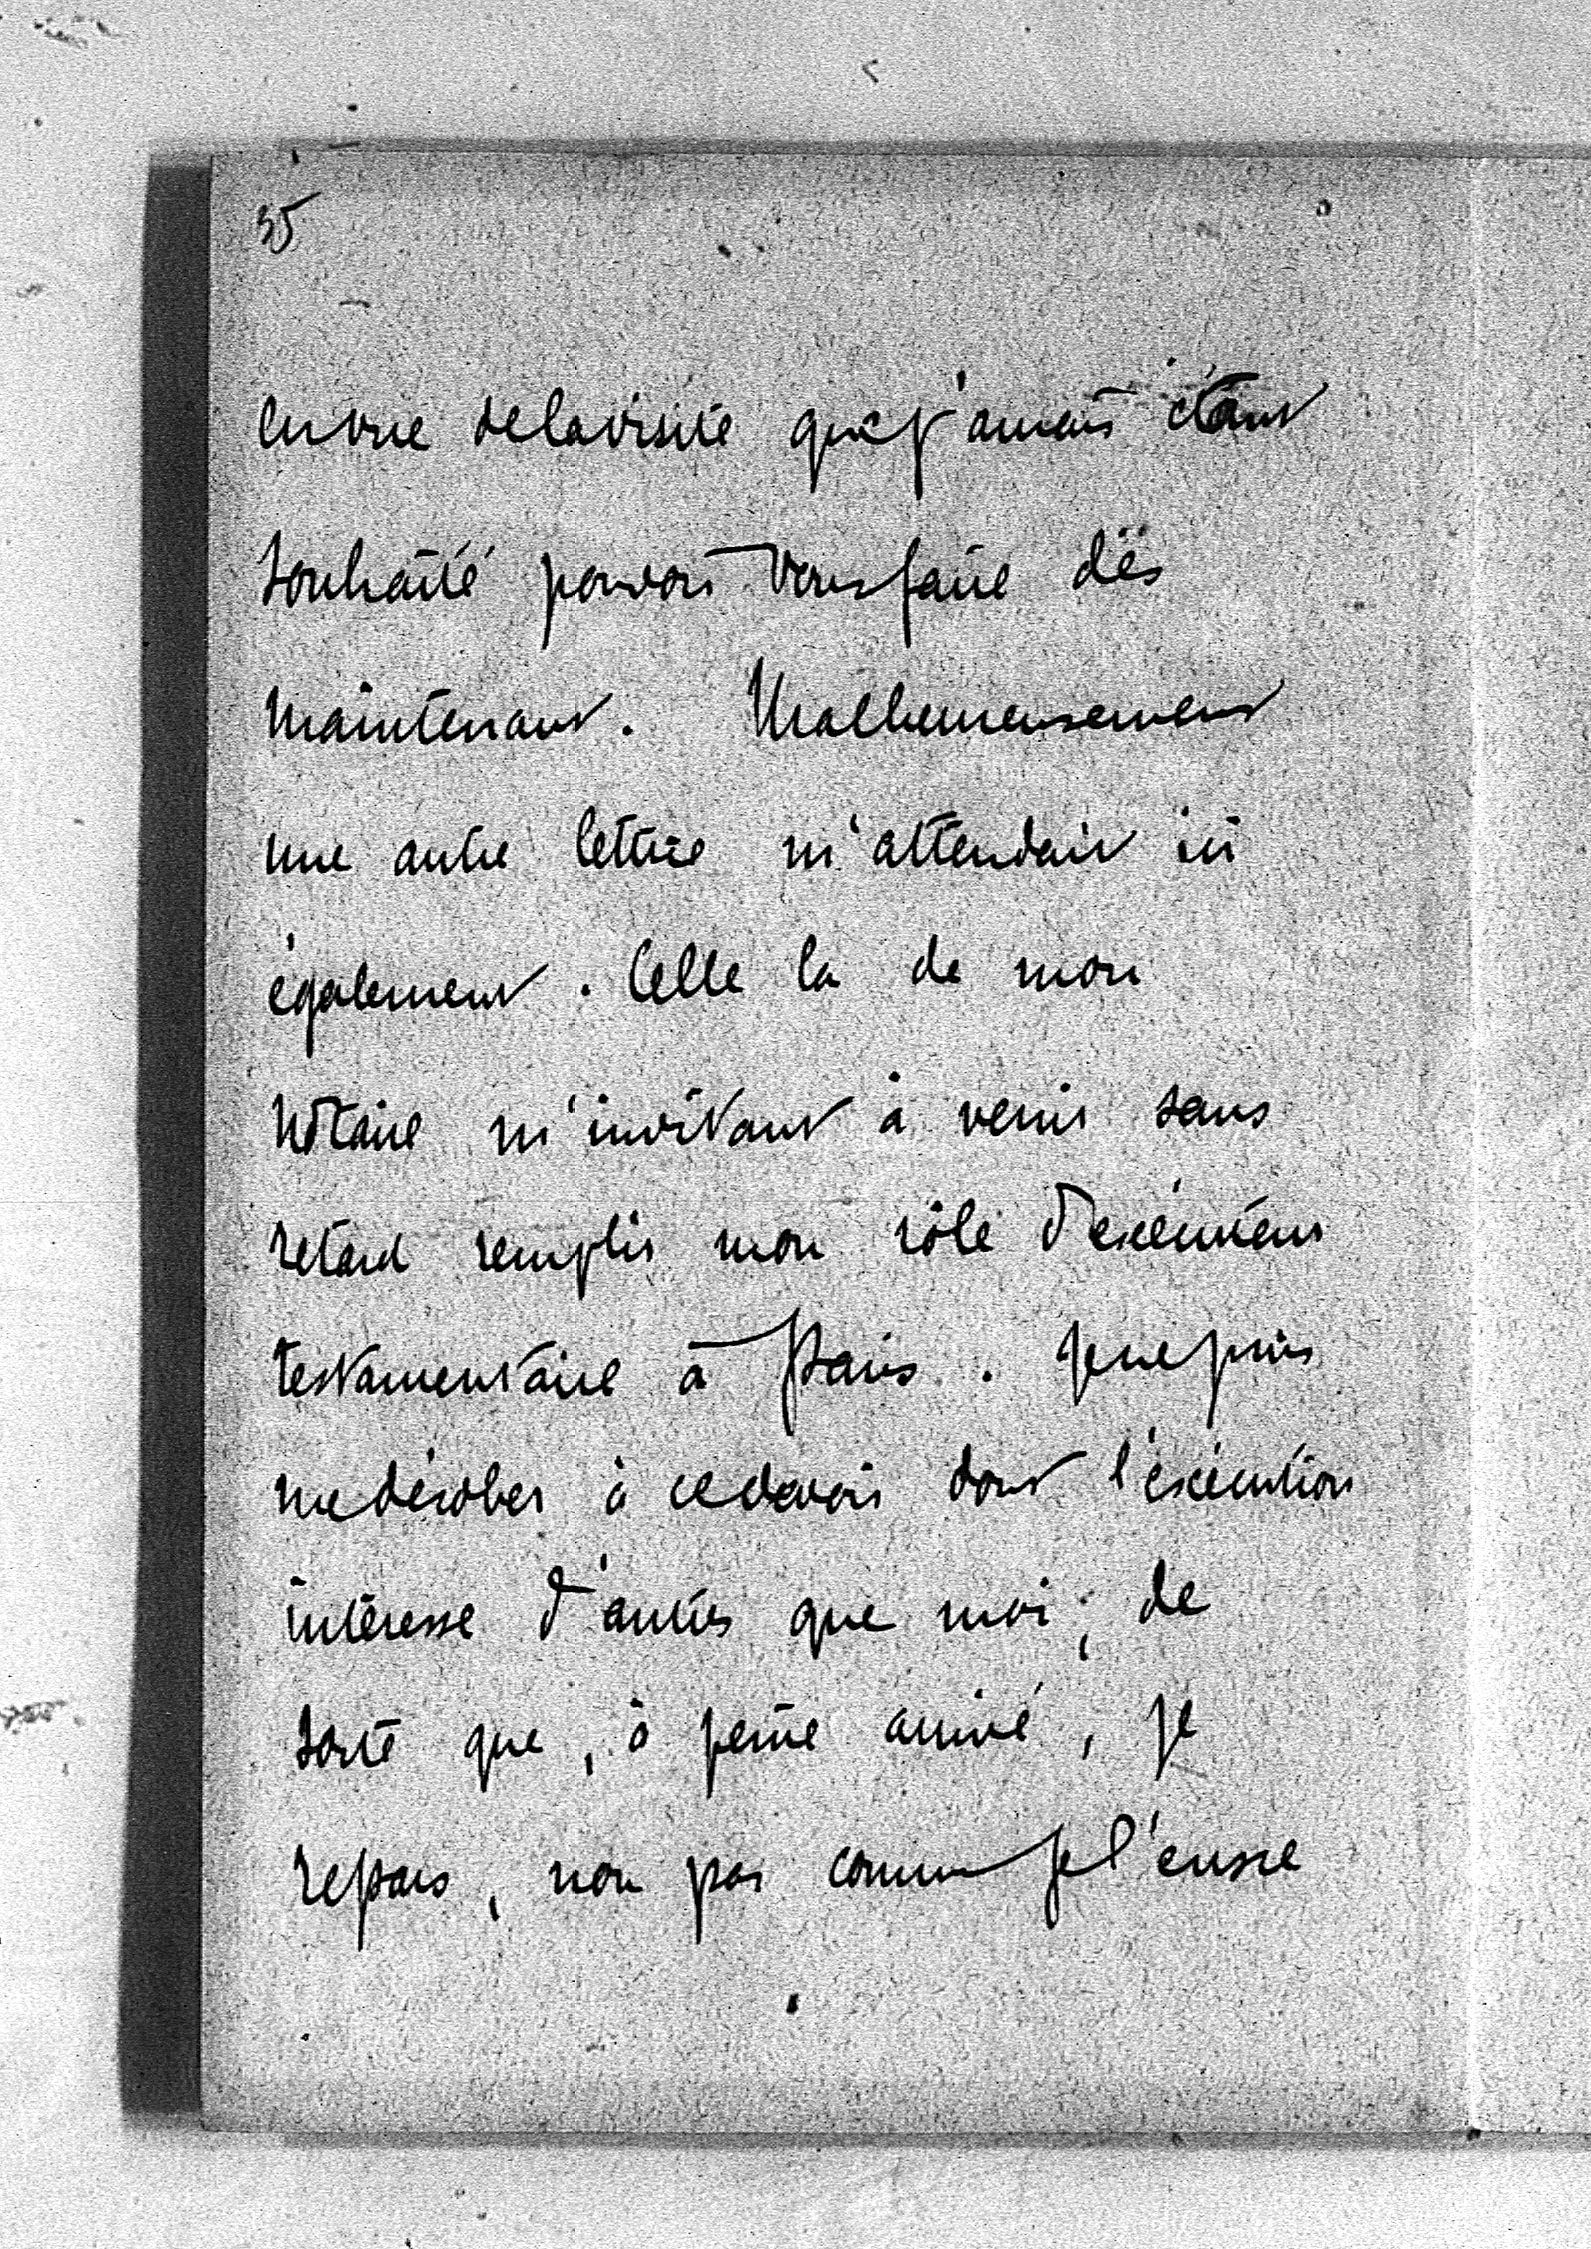 35
en vue de la visite que j'aurais
souhaité pouvoir vous faire dès
maintenant. Malheureusement
une autre lettre m'attendait ici
également. Celle la de mon
notaire m'invitant à venir sans
retard remplir mon rôle d'exécuteur
testamentaire à Paris. Je ne puis
me dérober à ce devoir dont l'exécution
intéresse d'autres que moi; de
sorte que, à peine arrivé, je
repars, non pas comme je l'eusse